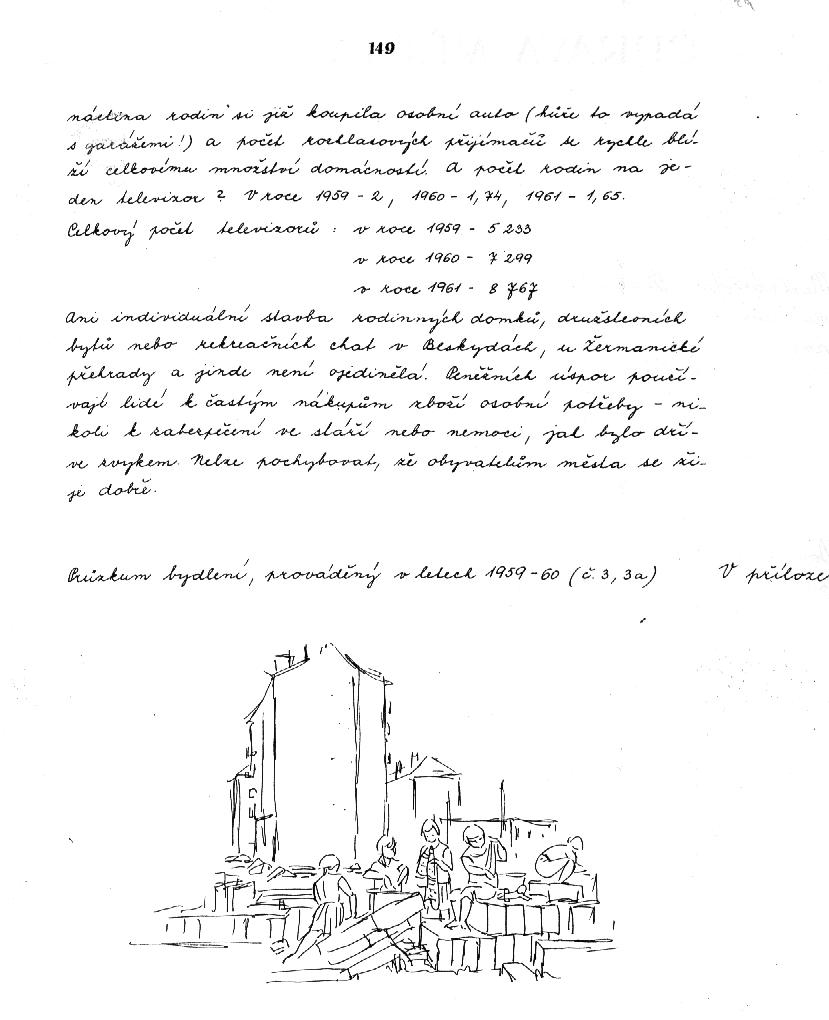 149
náctina rodin si již koupila osobní auto (hůře to vypadá
s garážemi!) a počet rozhlasových přijímačů se rychle blí-
ží celkovému množství domácností. A počet rodin na je-
den televizor? V roce 1959 - 2, 1960 - 1,74, 1961 - 1,65.
Celkový počet televizorů : v roce 1959 - 5 233
v roce 1960 - 7 299
v roce 1961 - 8 767
Ani individuální stavba rodinných domků, družstevních
bytů nebo rekreačních chat v Beskydách, u Žermanické
přehrady a jinde není ojedinělá. Peněžních úspor použí-
vají lidé k častým nákupům zboží osobní potřeby - ni-
koli k zabezpečení ve stáří nebo nemoci, jak bylo dří-
ve zvykem. Nelze pochybovat, že obyvatelům města se ži-
je dobře.
Průzkum bydlení, prováděný v letech 1959-60 (č. 3, 3a) V příloze